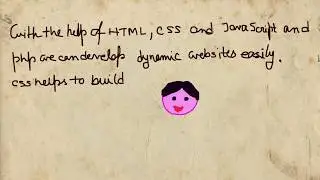 with the help of HTML, CSS and JavaScript and
php we can develop dynamic websites easily.
css helps to build